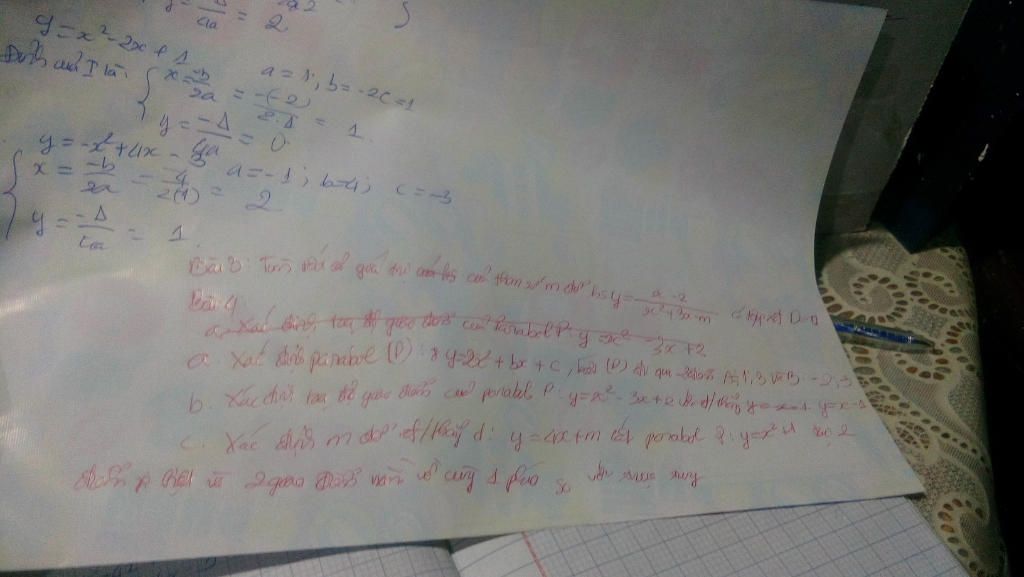 y = -Δ/4a = 2
y = x² - 2x + 1
Đỉnh của I là: { x = -b/2a = -(-2)/2.1 = 1 a = 1; b = -2 c = 1
y = -Δ/4a = 0
y = -x² + 4x - 3
{ x = -b/2a = 4/2(1) = 2 a = -1; b = 4; c = -3
y = -Δ/4a = 1
Bài 3: Tìm tất cả giá trị của tham số m để hs y = x-2/x²+3x-m có tập xđ D=R
Bài 4
a. Xác định toạ độ giao điểm của Parabol P: y = x² - 3x + 2
a. Xác định parabol (P): y = 2x² + bx + c, biết (P) đi qua điểm A 1,3 và B -2,3
b. Xác định toạ độ giao điểm của parabol P: y = x² - 3x + 2 đ/thẳng y = x - 1
c. Xác định m để đ/thẳng d: y = 4x + m cắt parabol P: y = x² tại 2
điểm p biệt và 2 giao điểm nằm về cùng 1 phía so với trục